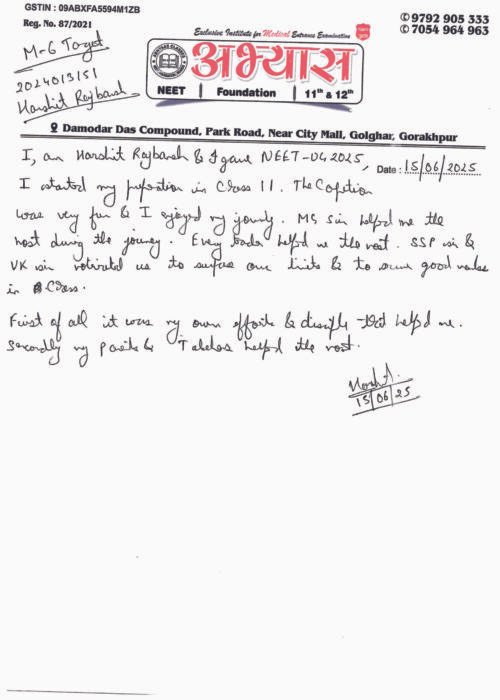 GSTIN : 09ABXFA5594M1ZB
Reg. No. 87/2021
Exclusive Institute for Medical Entrance Examination
✆ 9792 905 333
✆ 7054 964 963
अभ्यास
NEET | Foundation | 11th & 12th
Damodar Das Compound, Park Road, Near City Mall, Golghar, Gorakhpur
M-6 Target
Harshit Rajbansh
Date : 15/06/2025
I, am Harshit Rajbansh & I gave NEET-UG 2025,
I started my in Class 11. The
was very fun & I enjoyed my journey. MS sir helped me the
most during the journey. Every helped me the most. SSP sir &
VK sir motivated us to our limits & to good
in Class.
First of all it was my own efforts & that helped me.
Secondly my & helped the most.
15/06/25